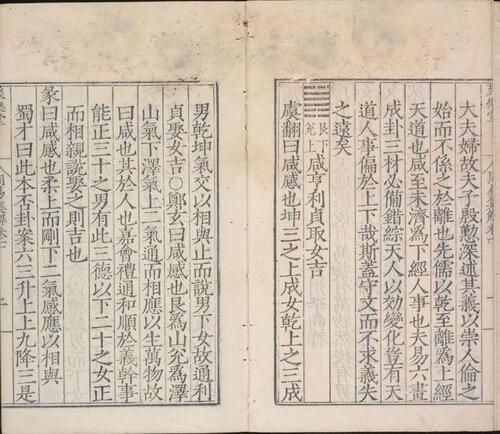 大夫婦故夫子殷懃深述其義以崇人倫之
始而不係之於離也先儒以乾至離爲上經
天道也咸至未濟爲下經人事也夫易六畫
成卦三材必備錯綜天人以效變化豈有天
道人事偏於上下哉斯蓋守文而不求義失
之遠矣
艮下兌上咸亨利貞取女吉
虞翻曰咸感也坤三之上成女乾上之三成
男乾坤氣交以相與止而說男下女故通利
貞娶女吉○鄭玄曰咸感也艮爲山兌爲澤
山氣下澤氣上二氣通而相應以生萬物故
曰咸也其於人也嘉會禮通和順於義幹事
能正三十之男有此三德以下二十之女正
而相親說娶之則吉也
彖曰咸感也柔上而剛下二氣感應以相與
蜀才曰此本否卦案六三升上上九降三是